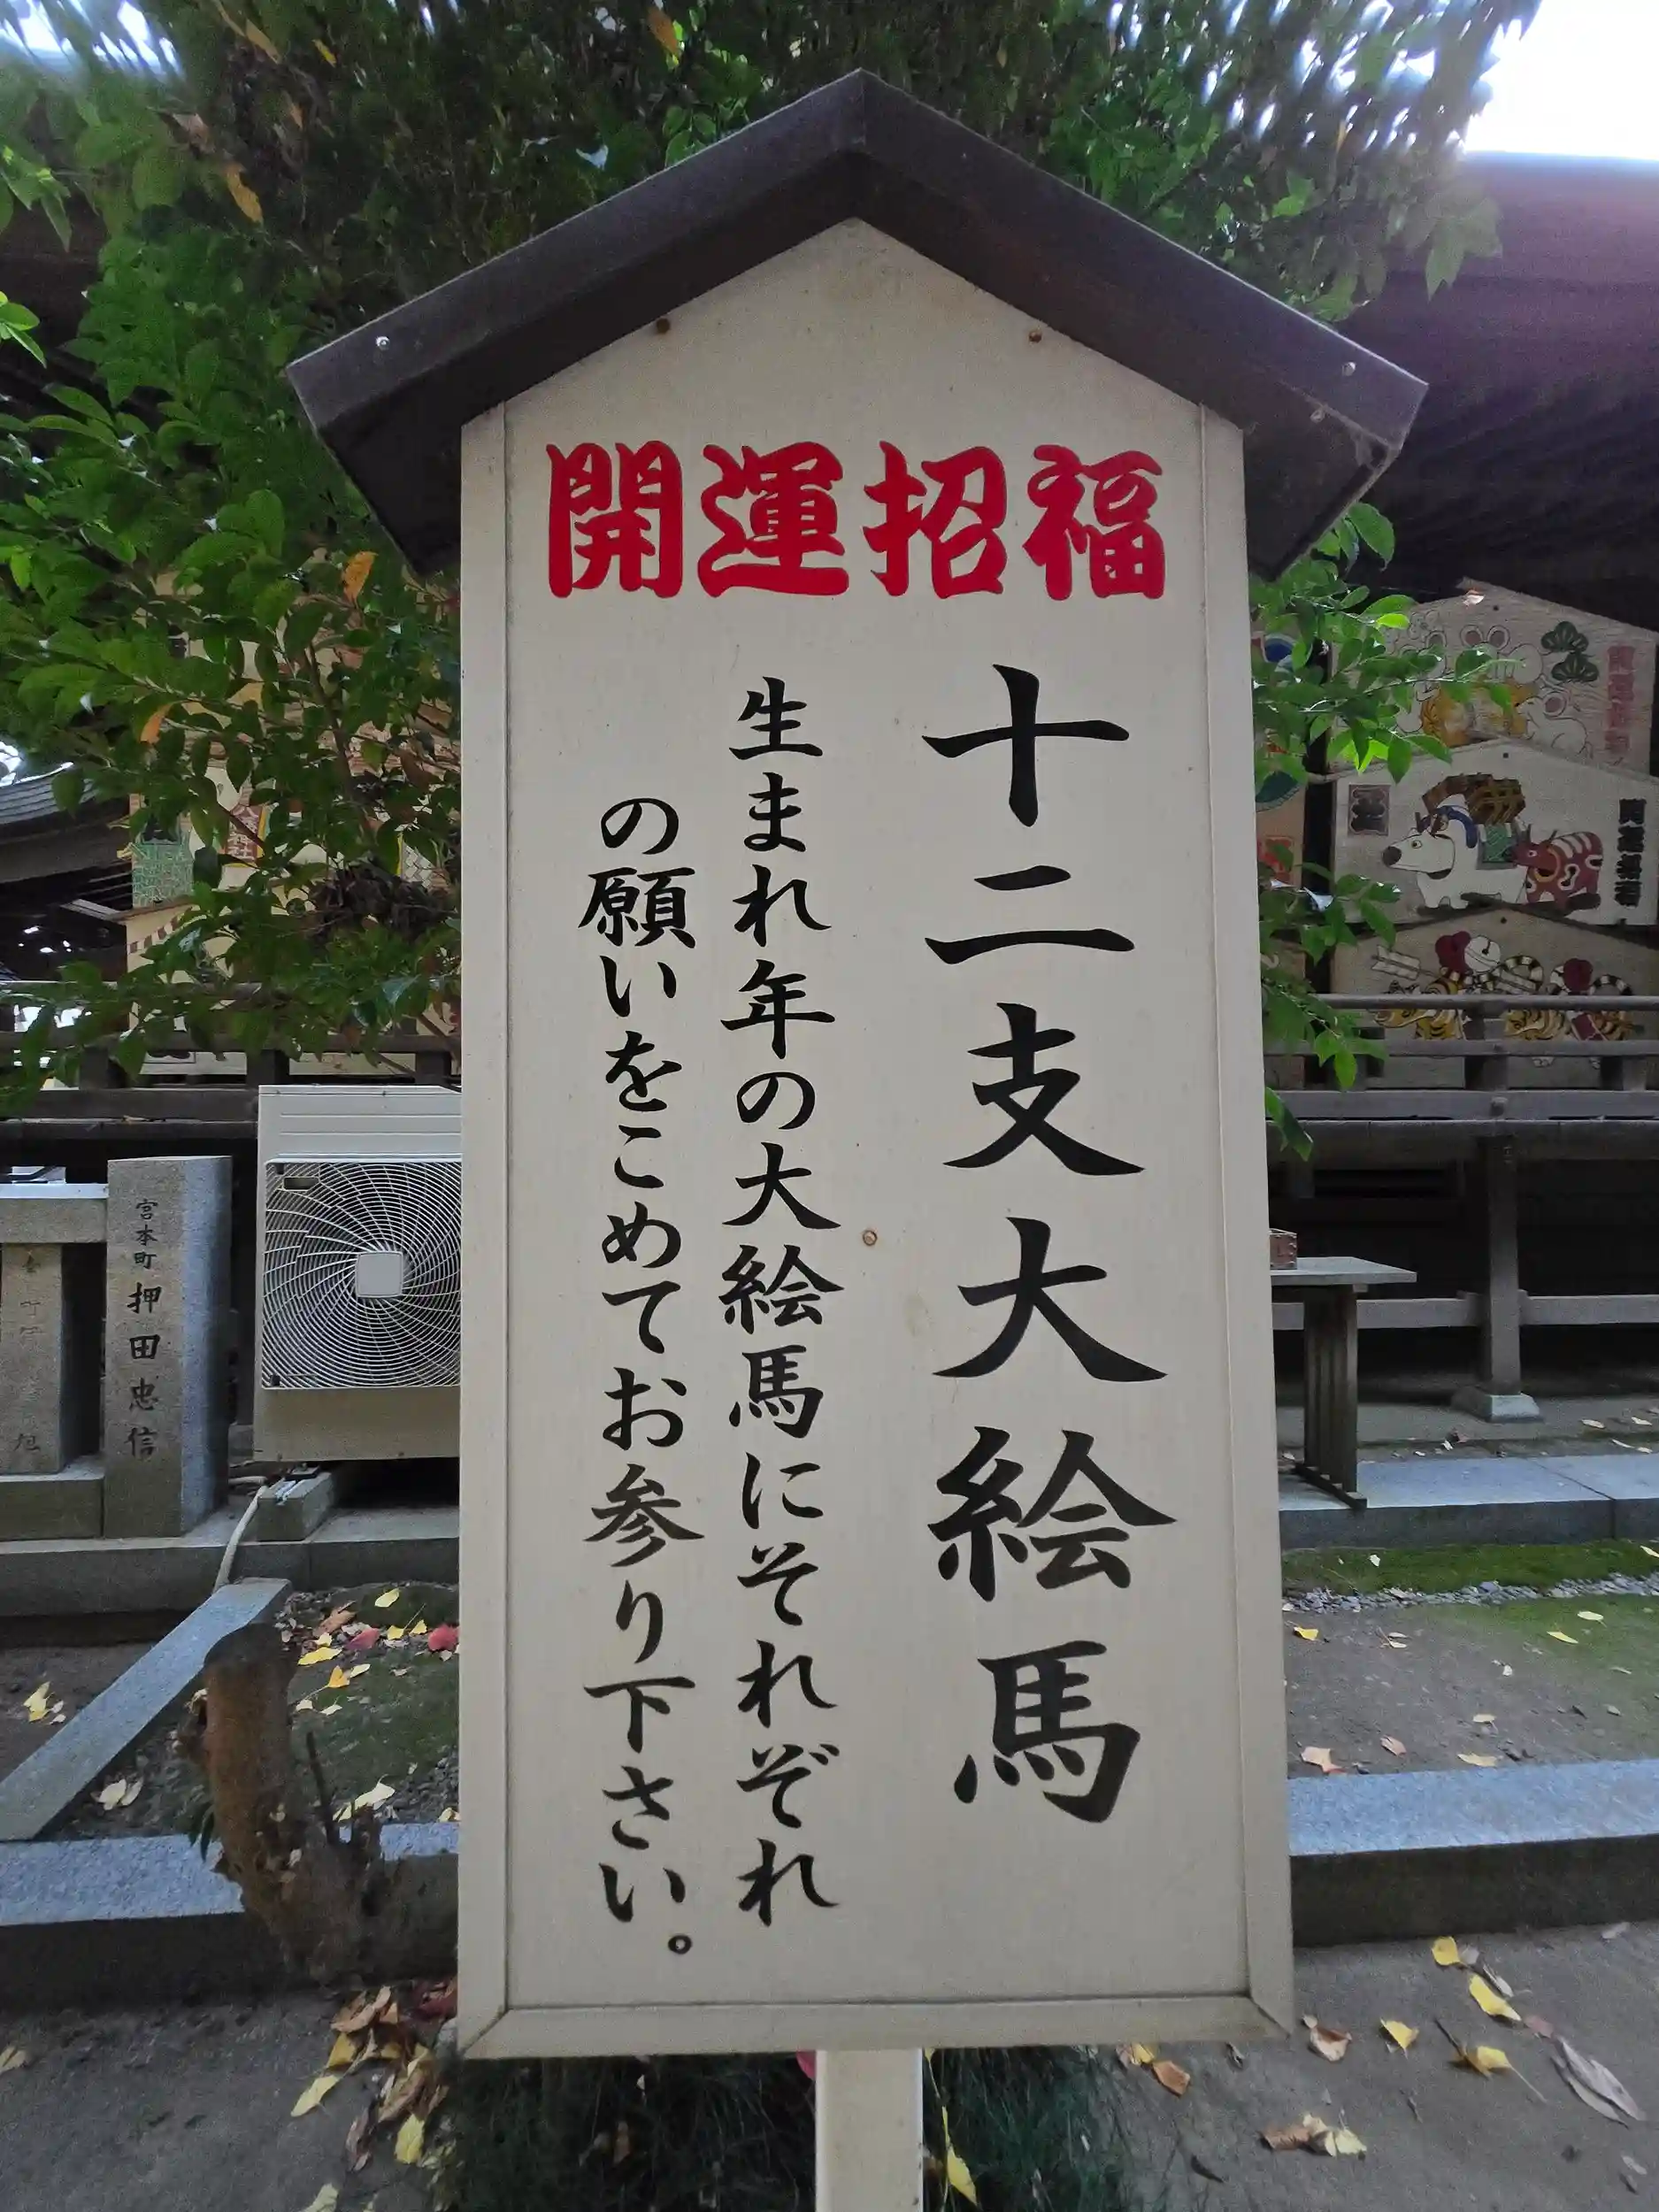 開運招福
十二支大絵馬
生まれ年の大絵馬にそれぞれ
の願いをこめてお参り下さい。
宮本町 押田忠信